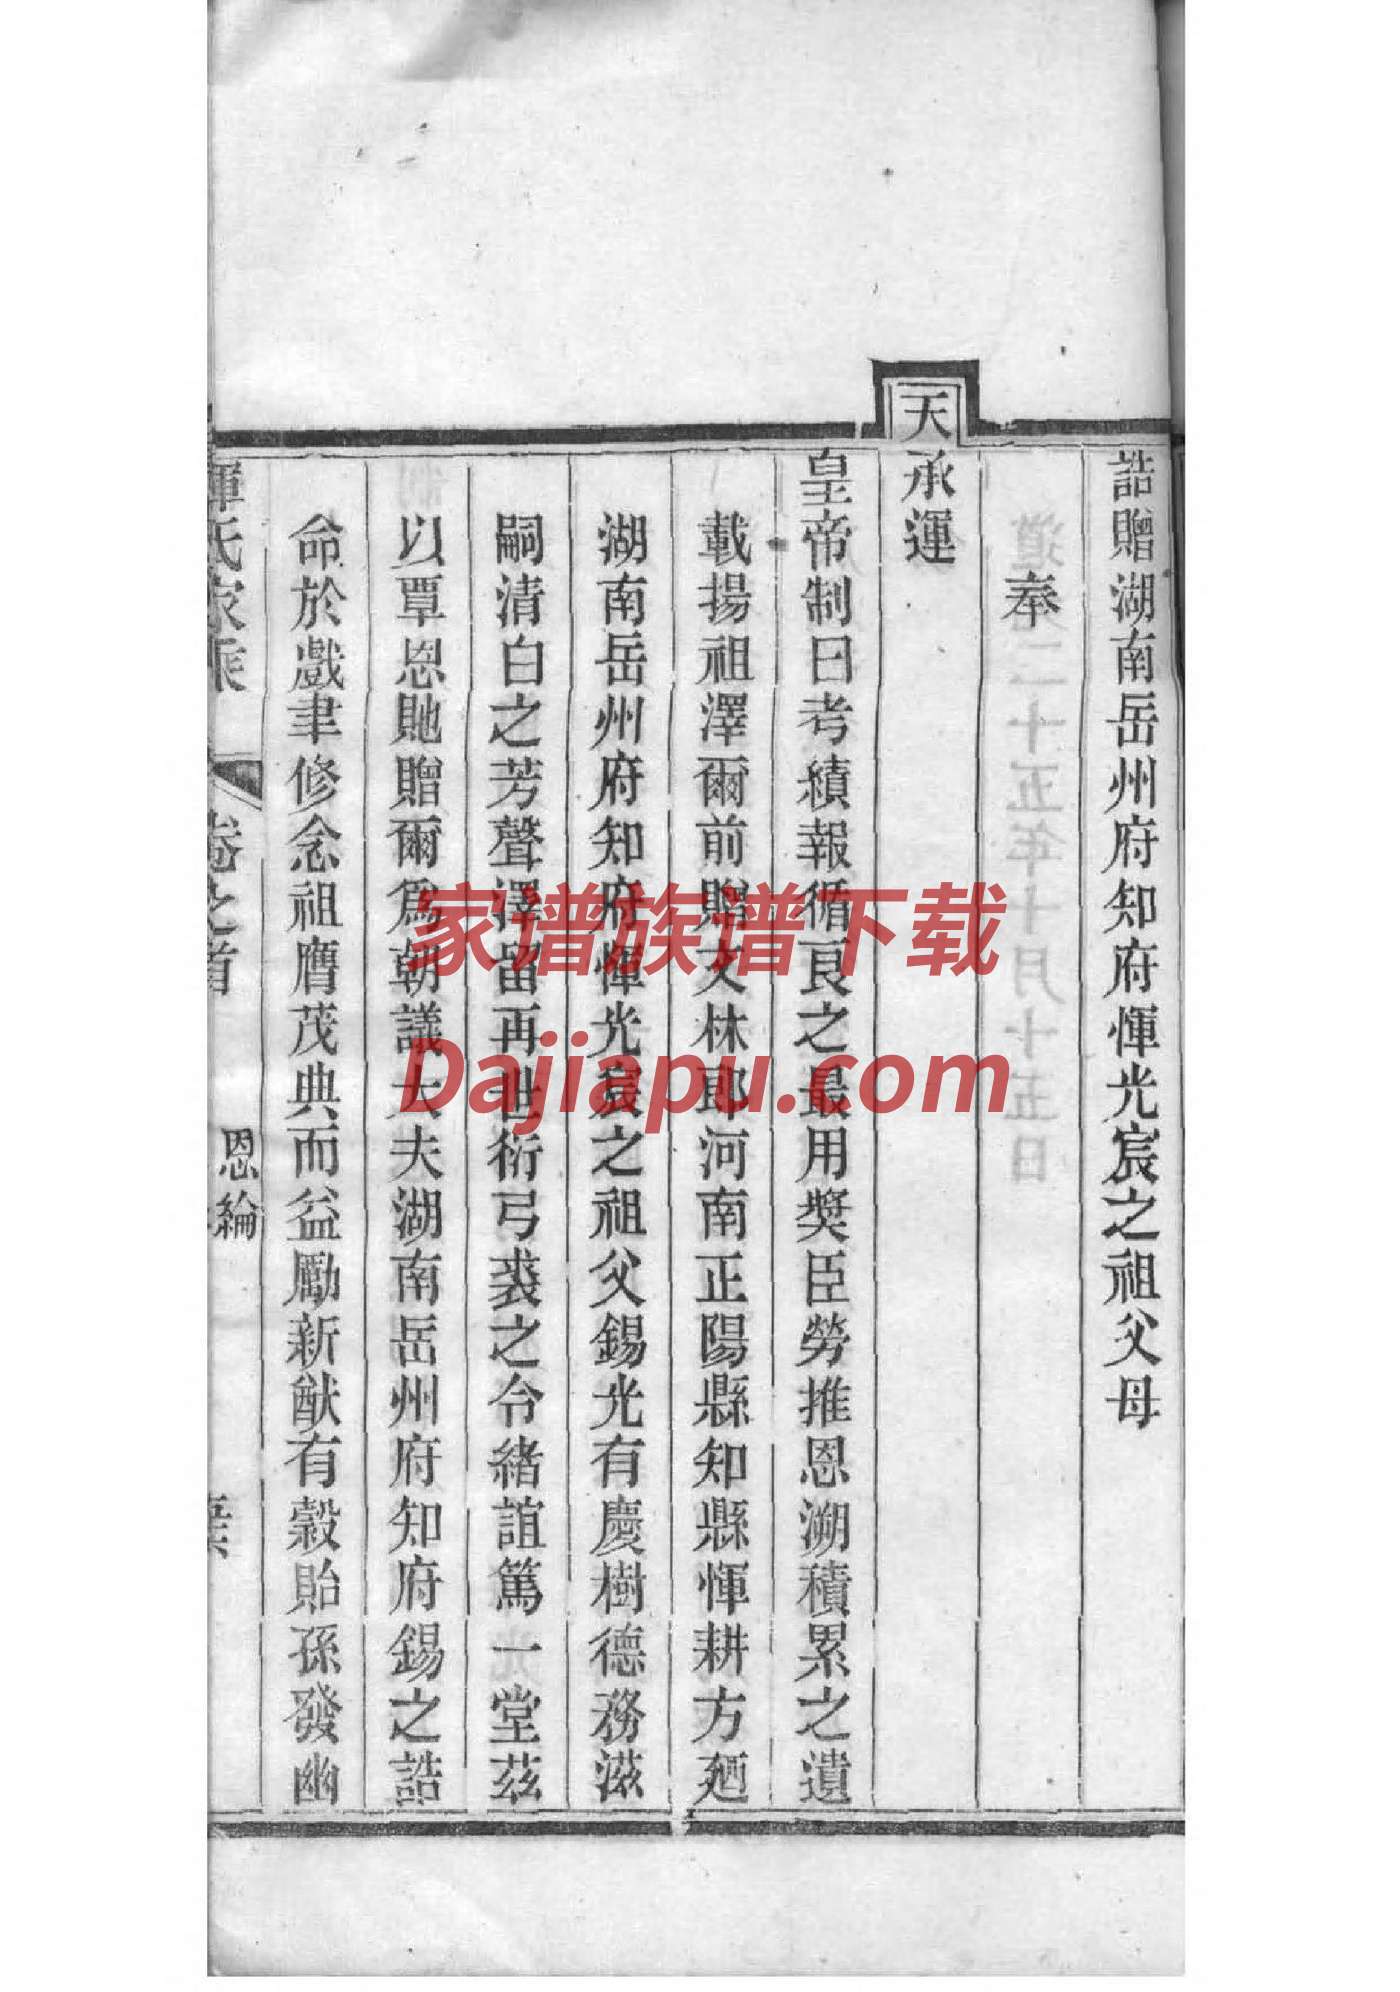 誥贈湖南岳州府知府惲光宸之祖父母
奉
天承運
皇帝制曰考績報循良之最用奬臣勞推恩溯積累之遺
載揚祖澤爾前贈文林郎河南正陽縣知縣惲耕方廼
湖南岳州府知府惲光宸之祖父錫光有慶樹德務滋
嗣清白之芳聲澤留再世衍弓裘之令緒誼篤一堂茲
以覃恩貤贈爾爲朝議大夫湖南岳州府知府錫之誥
命於戲聿修念祖膺茂典而益勵新猷有穀貽孫發幽
惲氏家乘 卷之首 恩綸
家谱族谱下载
Dajiapu.com